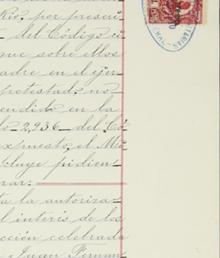 Rio, por prescri
del Código ci
que sobre ellos
padre en el ejer
protestad, no
endido en la
lo 2,936 del Có
expuesto, el Mi
cluye pidien
rar:
ta la autoriza
l interés de los
cción celebrada
Juan Fernan